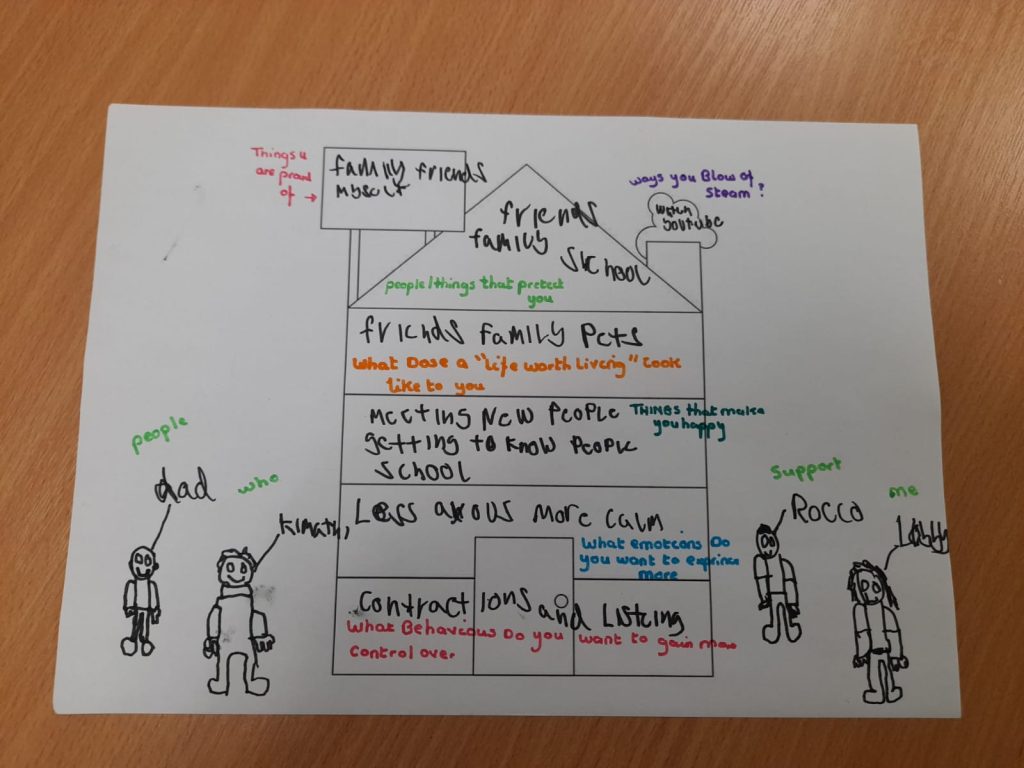 Things u
are proud
of →
family friends
Myself
ways you Blow of
Steam?
watch
youtube
friends
family
school
people/things that protect
you
friends family Pets
What Dose a "life worth Livering" Look
like to you
Meeting New People
getting to know people
School
THINGS that make
you happy
Less axous more calm
What emotions Do
you want to exprince
more
contractions and Listing
What Behavious Do you want to gain more
control over
people
who
support
me
dad
Rocco